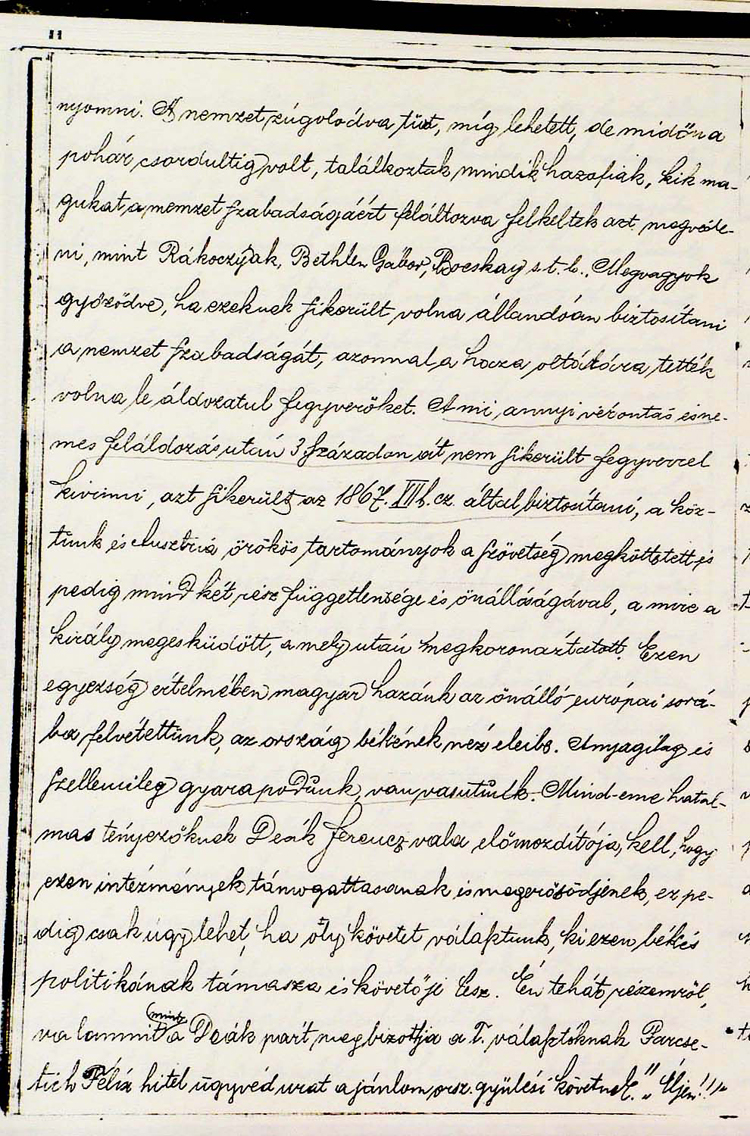 11
nyomni. A nemzet zúgolódva tűrt, míg lehetett, de midőn a
pohár csordultig volt, találkoztak mindik hazafiak, kik ma-
gukat a nemzet szabadságáért feláldozva felkeltek azt megvéde-
ni, mint Rákoczyak, Bethlen Gábor, Bocskay s.t.b. Megvagyok
győződve, ha ezeknek sikerült volna állandóan biztosítani
a nemzet szabadságát, azonnal a haza oltárára tették
volna le áldozatul fegyverőket. A mi annyi vérontás és ne-
mes feláldozás után 3 századon át nem sikerült fegyverrel
kivinni, azt sikerült az 1867. XII t. cz. által biztosítani, a köz-
tünk és Ausztria örökös tartományok a szövetség megköttetett és
pedig mind két rész függetlensége és önállóságával, a mire a
király megesküdött, a mely után megkoronáztatott. Ezen
egyezség értelmében magyar hazánk az önálló európai sorá-
ba felvétettünk, az ország békének néz eleibe. Anyagilag és
szellemileg gyarapodunk, van vasutunk. Mind-eme hatal-
mas tényezőknek Deák Ferencz vala előmozdítója, kell, hogy
ezen intézmények támogattasanak és megerősödjenek, ez pe-
dig csak úgy lehet, ha oly követet választunk, ki ezen békés
politikának támasza és követője lesz. Én tehát részemről,
valamint (mint) a Deák párt megbizottja a T. választóknak Parcse-
tich Félix hitel ügyvéd urat ajánlom orsz. gyülési követnek." "Éljen!!!"